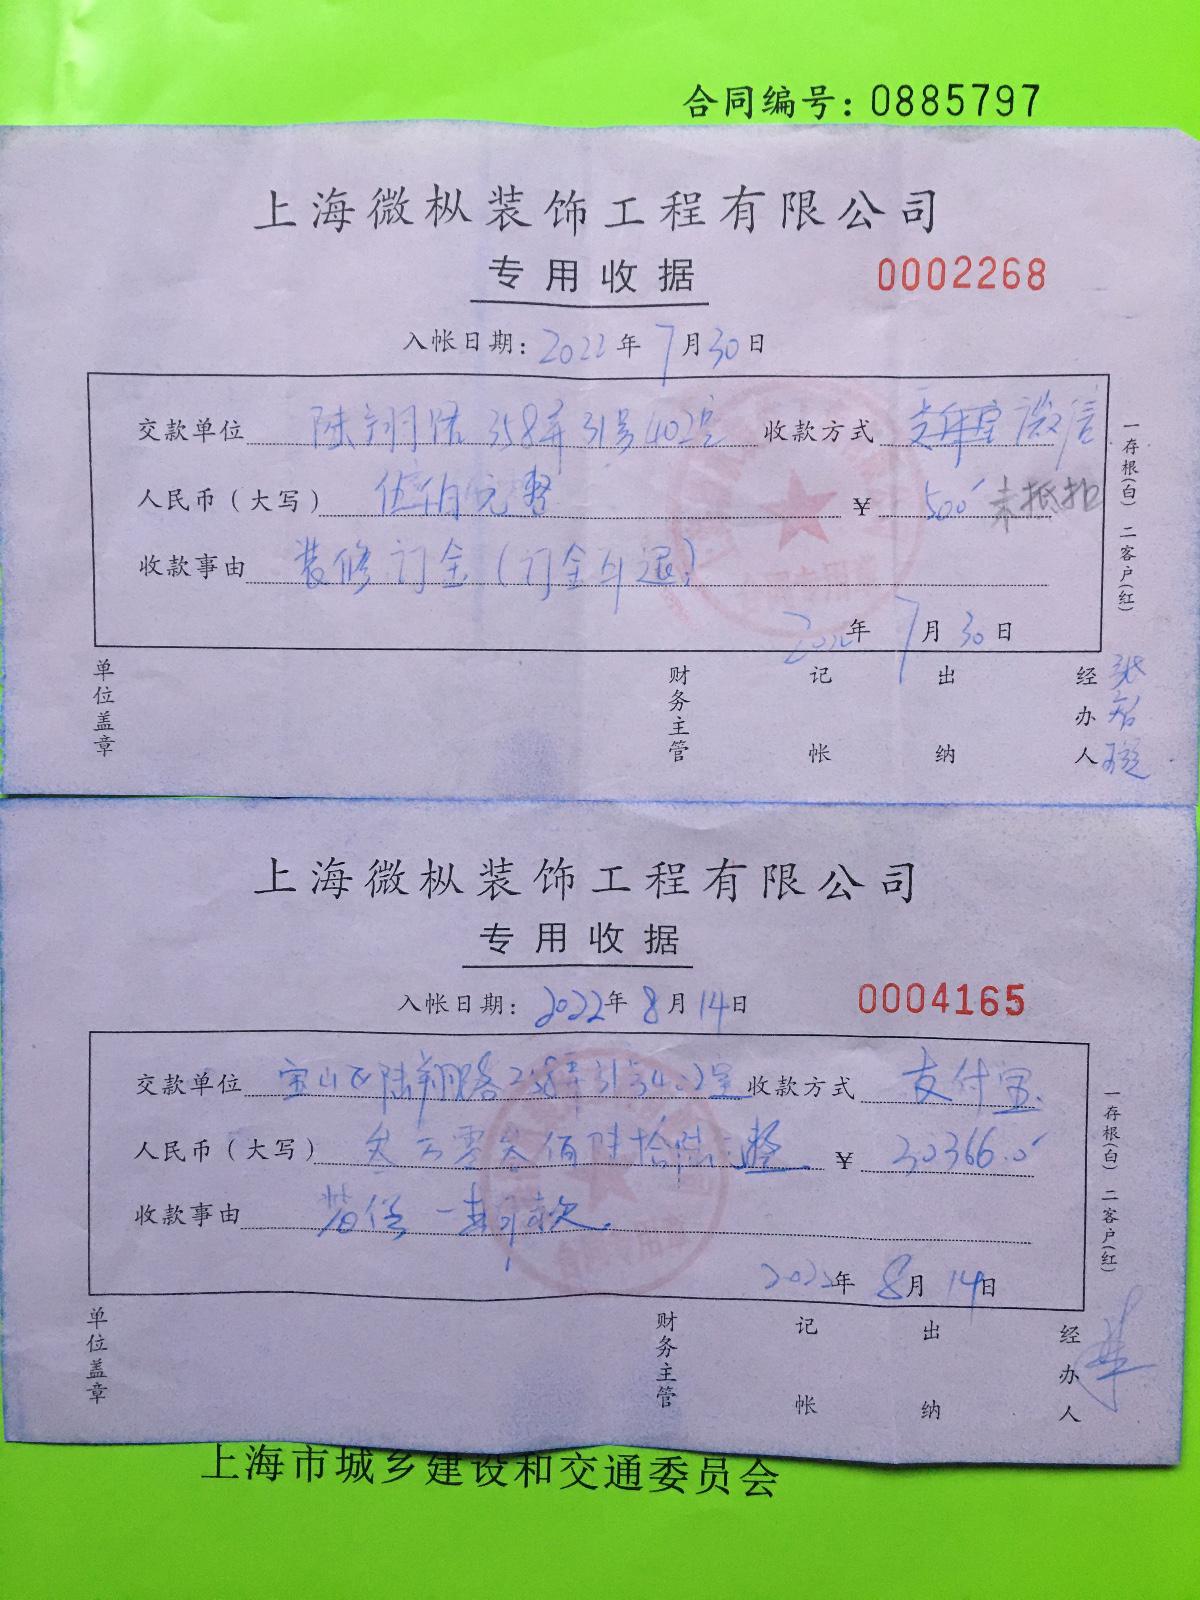 合同编号：0885797
上海微枞装饰工程有限公司
专用收据
0002268
入帐日期：2022年7月30日
交款单位 陆翔路358弄31号402室 收款方式 支付宝 微信
人民币（大写） 伍佰元整 ¥ 500 未抵扣
收款事由 装修订金（订金可退）
2022年7月30日
单位盖章 财务主管 记帐 出纳 经办人
一存根(白) 二客户(红)
上海微枞装饰工程有限公司
专用收据
入帐日期：2022年8月14日
0004165
交款单位 宝山区陆翔路 弄31号402室 收款方式 支付宝
人民币（大写） 叁万零叁佰陆拾陆元整 ¥ 30366.0
收款事由 首期款
2022年8月14日
单位盖章 财务主管 记帐 出纳 经办人
一存根(白) 二客户(红)
上海市城乡建设和交通委员会